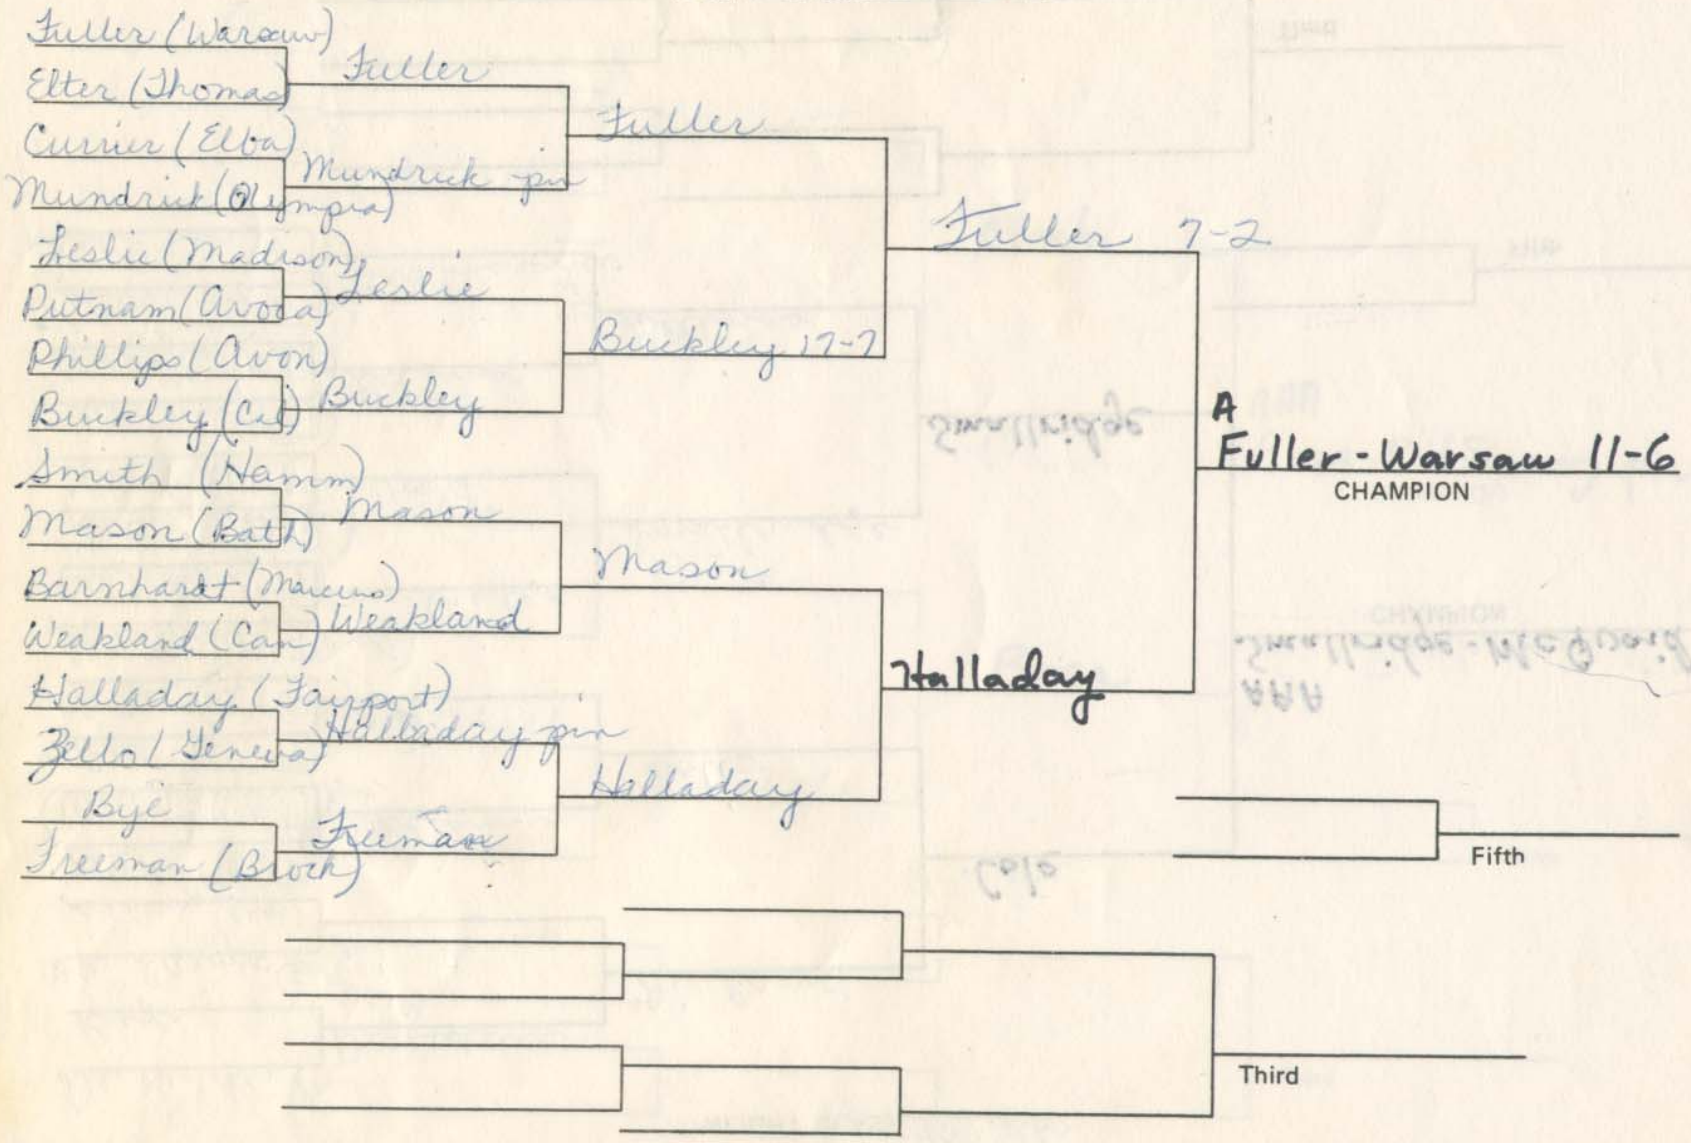 Fuller (Warsaw)
Elter (Thomas)
Currier (Elba)
Mundrick (Olympia)
Leslie (Madison)
Putnam (Avoca)
Phillips (Avon)
Buckley (Cal)
Smith (Hamm)
Mason (Bath)
Barnhardt (Marcus)
Weakland (Can)
Halladay (Fairport)
Zello (Geneva)
Bye
Freeman (Brock)
Fuller
Mundrick pin
Leslie
Buckley
Mason
Weakland
Halladay pin
Freeman
Fuller
Buckley 17-7
Mason
Halladay
Fuller 7-2
Halladay
A
Fuller-Warsaw 11-6
CHAMPION
Fifth
Third
Smallridge
CHAMPION
Smallridge-McQuaid
AAA
Cole